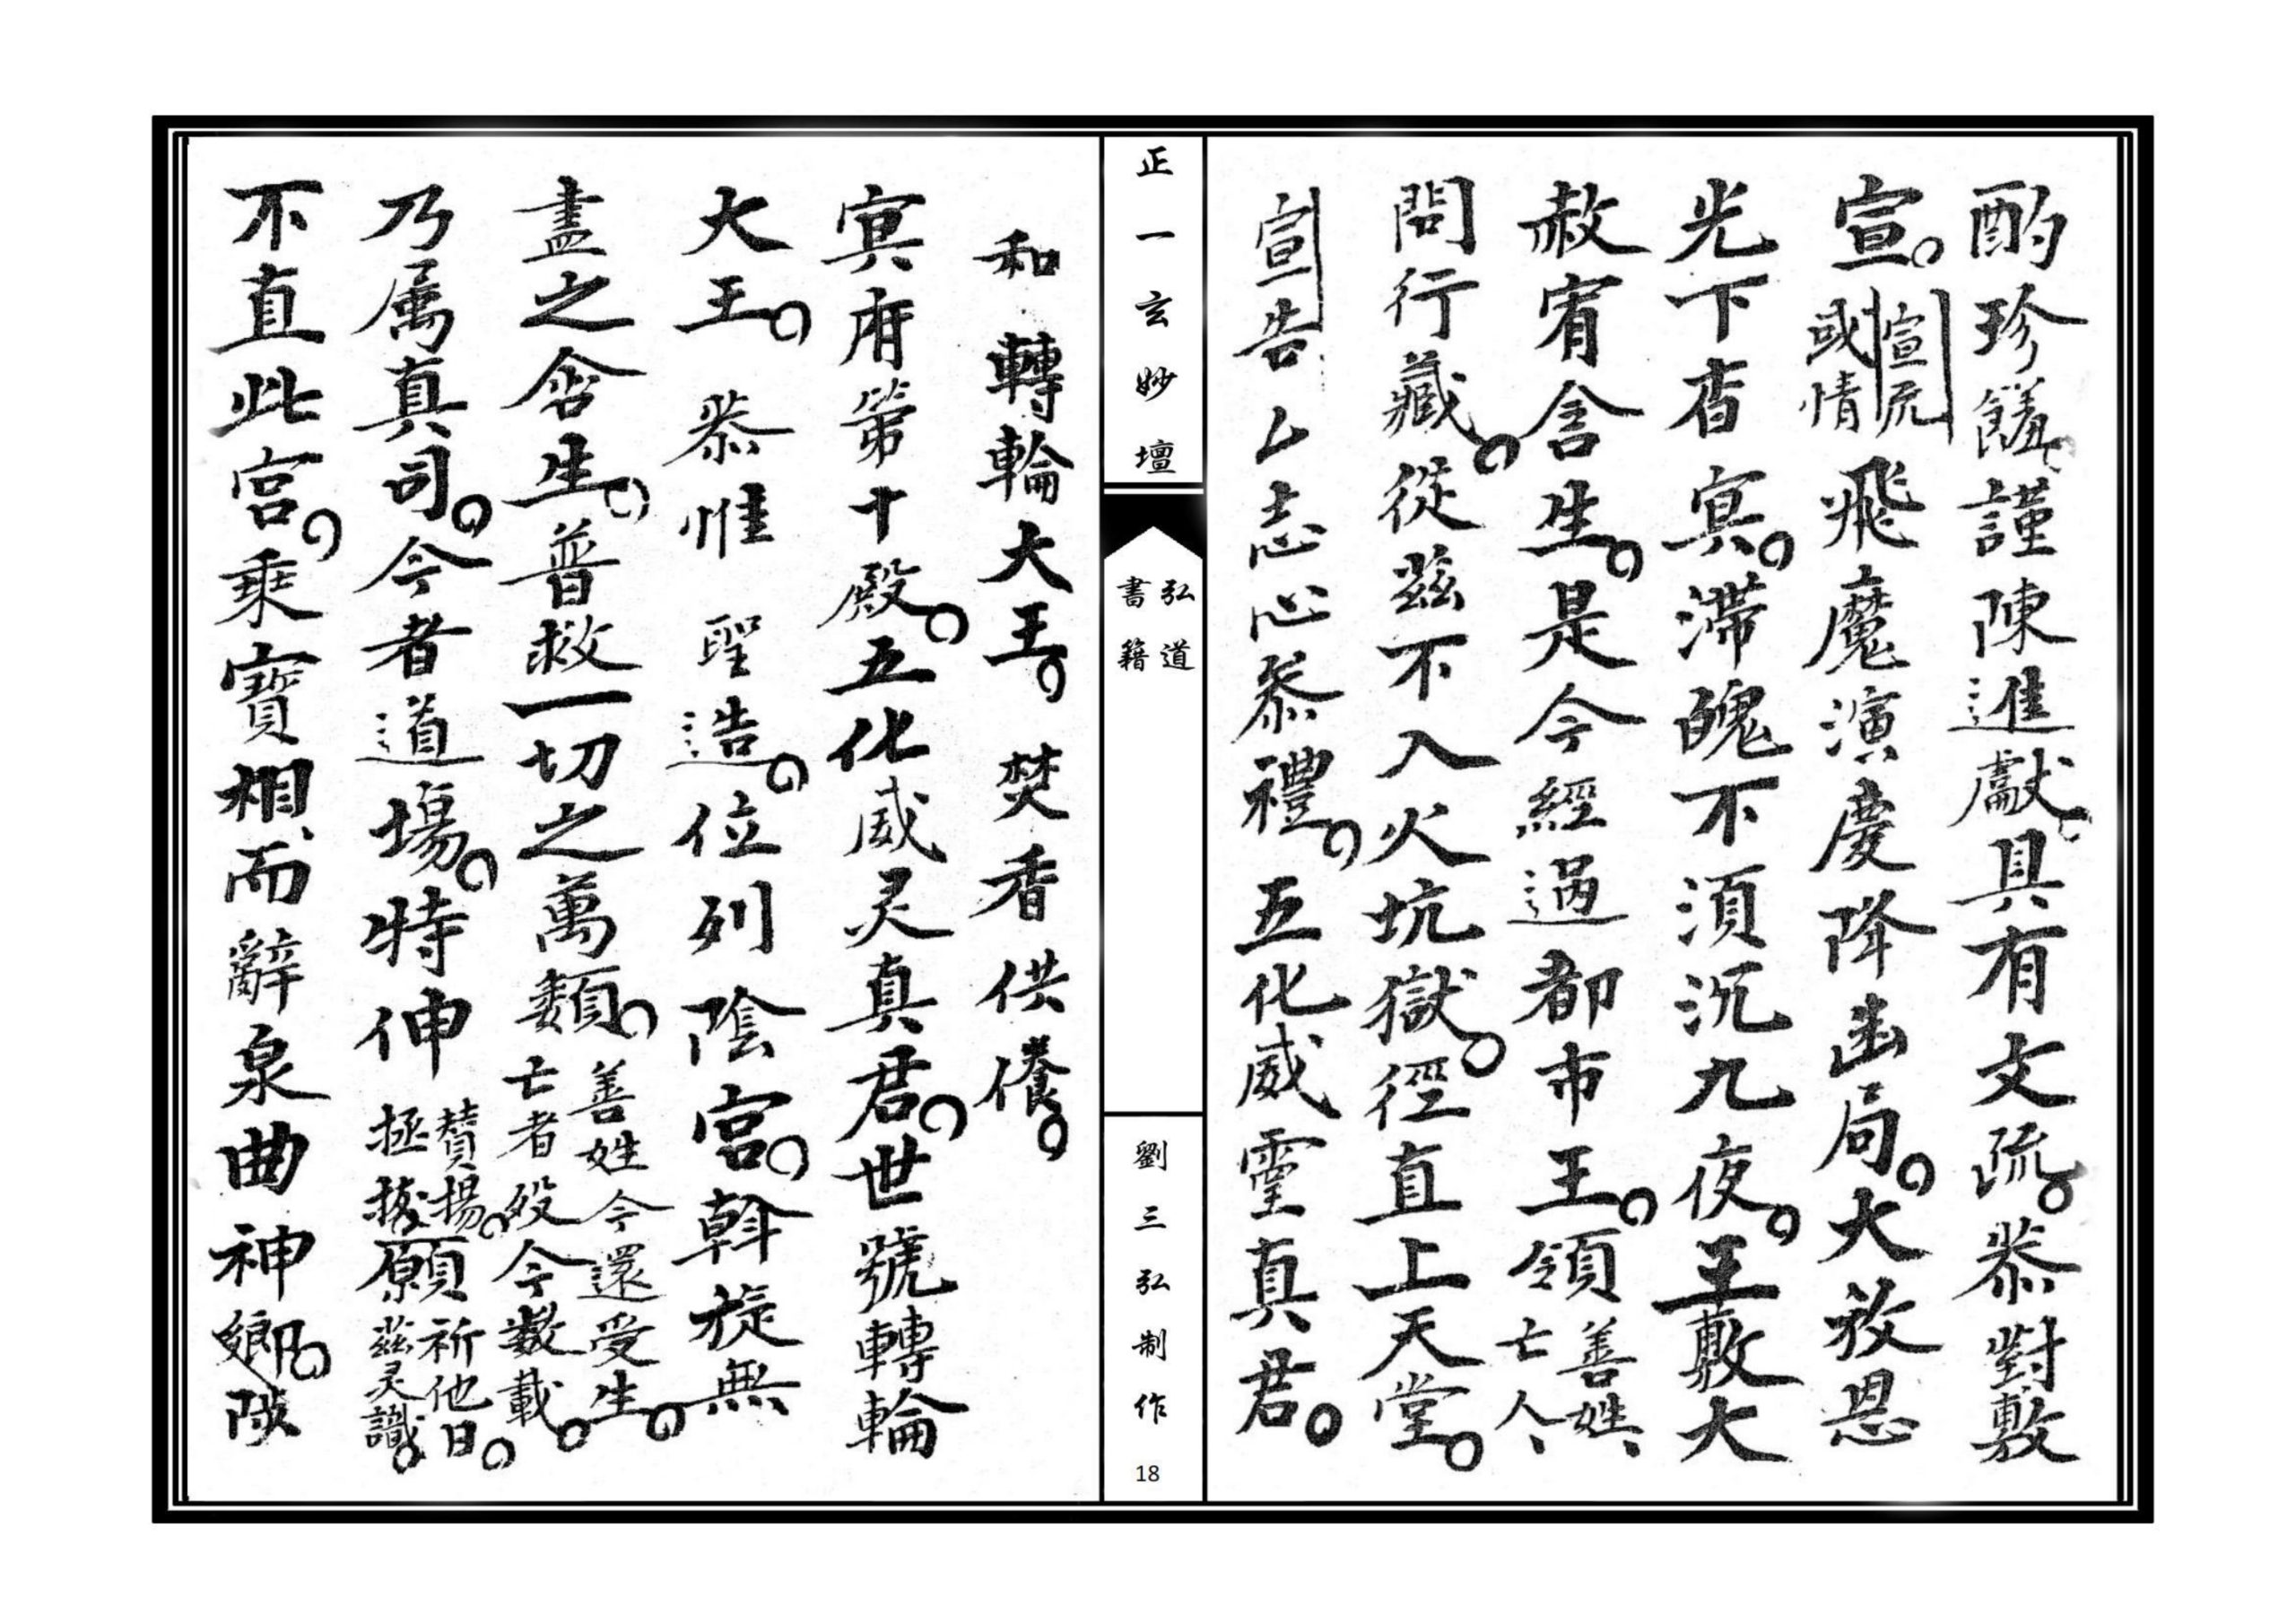 酌珍饈謹陳進獻具有文疏。恭對敷
宣。宣疏或情飛魔演慶降幽局。大放恩
光下杳冥。滯魄不須沉九夜。王敷大
赦宥含生。是今經過都市王。領善姓亡人
問行藏。從茲不入火坑獄。徑直上天堂。
宣告厶志心恭禮。五化威靈真君。
正一玄妙壇
弘道書籍
劉三弘制作
18
和轉輪大王。焚香供養。
冥府第十殿。五化威灵真君。世號轉輪
大王。恭惟聖造。位列陰宮。斡旋無
盡之含生。普救一切之萬類。善姓今還受生。亡者殁今數載。
乃属真司。今者道場。特伸讃揚。拯拔願祈他日。茲灵識。
不直此宮。乘寶相、而辭泉曲神鄉。陟